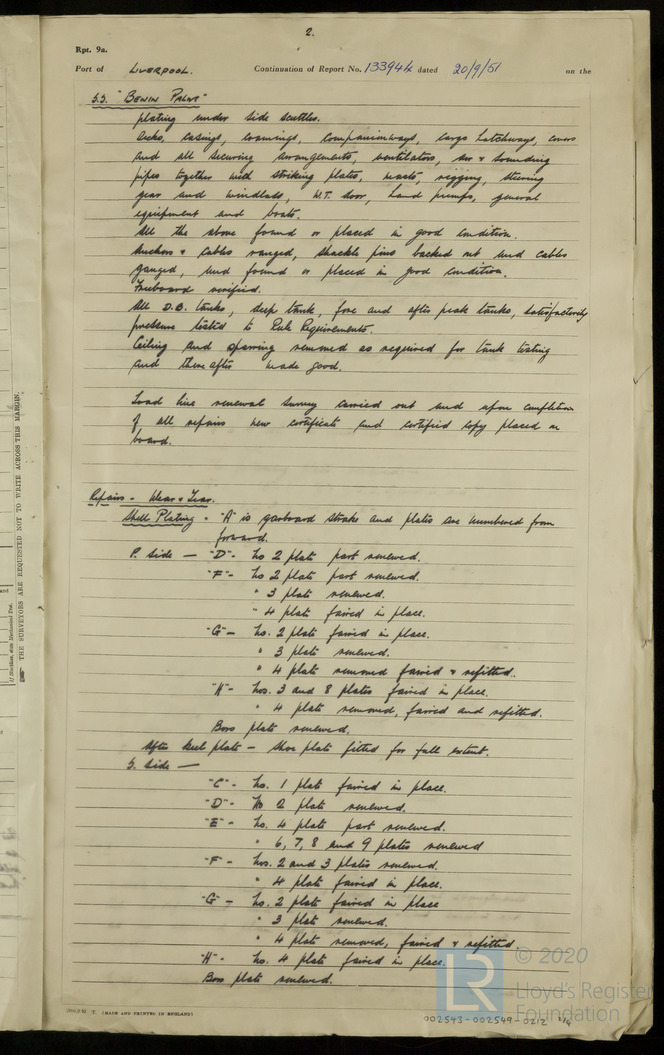 2.
Rpt. 9a.
Port of LIVERPOOL. Continuation of Report No. 133944 dated 20/9/51 on the
S.S. "BENIN PALM"
plating under side scuttles.
Decks, casings, coamings, companionways, cargo hatchways, covers
and all securing arrangements, ventilators, air & sounding
pipes together with striking plates, masts, rigging, steering
gear and windlass, W.T. door, hand pumps, general
equipment and boats.
All the above found or placed in good condition.
Anchors & cables ranged, shackle pins backed out and cables
gauged, and found or placed in good condition.
Freeboard verified.
All D.B. tanks, deep tank, fore and after peak tanks, satisfactorily
pressure tested to Rule Requirements.
Ceiling and sparring removed as required for tank testing
and thereafter made good.
Load line renewal survey carried out and upon completion
of all repairs new certificate and certified copy placed on
board.
Repairs - Wear & Tear.
Shell Plating - "A" is garboard strake and plates are numbered from
forward.
P. Side — "D" - No 2 plate part renewed.
"F" - No 2 plate part renewed.
" 3 plate renewed.
" 4 plate faired in place.
"G" - No. 2 plate faired in place.
" 3 plate renewed.
" 4 plate removed faired & refitted.
"H" - Nos. 3 and 8 plates faired in place.
" 4 plate removed, faired and refitted.
Boss plate renewed.
After keel plate - shoe plate fitted for full extent.
S. Side —
"C" - No. 1 plate faired in place.
"D" - No 2 plate renewed.
"E" - No. 4 plate part renewed.
" 6, 7, 8 and 9 plates renewed
"F" - Nos. 2 and 3 plates renewed.
" 4 plate faired in place.
"G" - No. 2 plate faired in place
" 3 plate renewed.
" 4 plate removed, faired & refitted.
"H" - No. 4 plate faired in place.
Boss plate renewed.
(MADE AND PRINTED IN ENGLAND)
002543-002549-0212 2/4
THE SURVEYORS ARE REQUESTED NOT TO WRITE ACROSS THIS MARGIN.
© 2020
LR
Lloyd's Register
Foundation